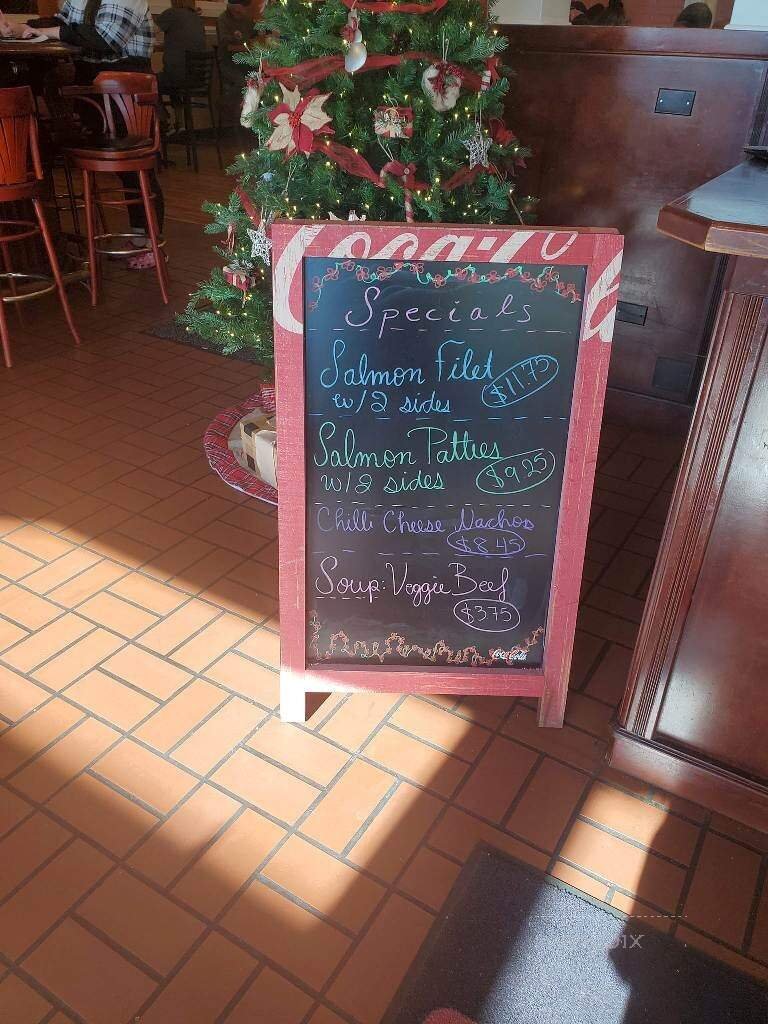 Coca-Co
Specials
Salmon Filet
w/2 sides $11.75
Salmon Patties
w/2 sides $9.25
Chilli Cheese Nachos
$8.45
Soup: Veggie Beef
$3.75
Coca-Cola